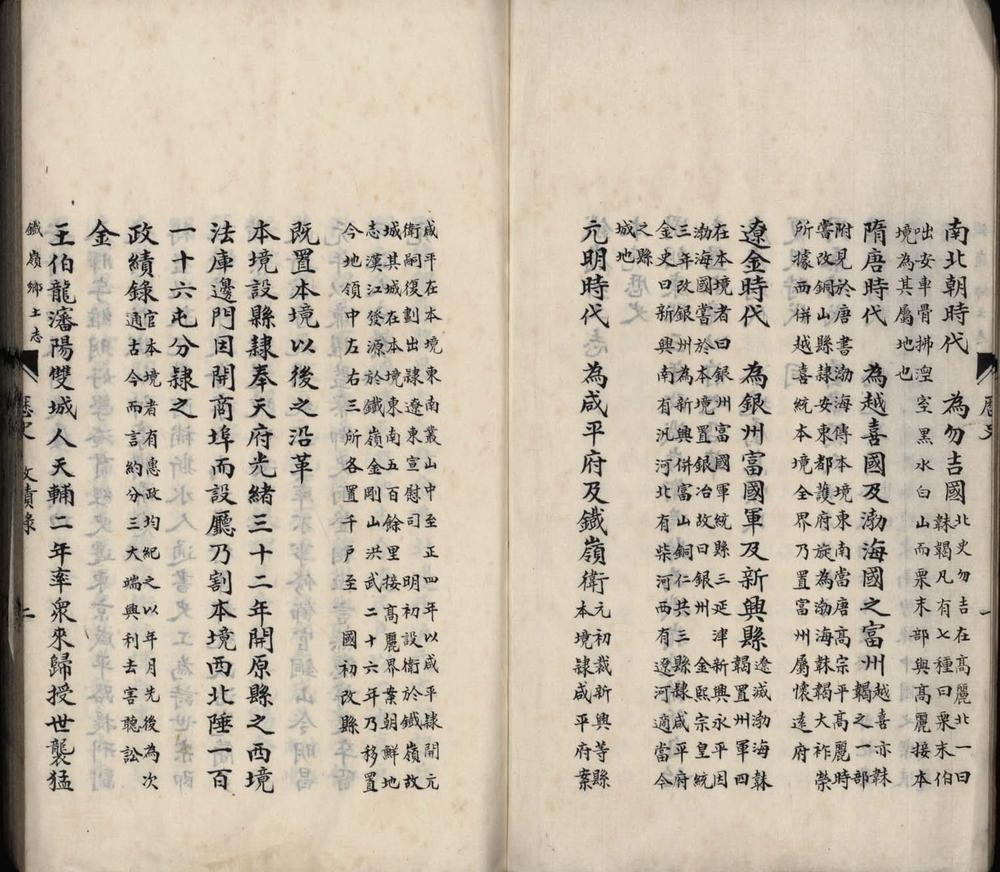 歷史
一
南北朝時代　為勿吉國北史勿吉在高麗北一曰靺鞨凡有七種曰粟末伯
咄安車骨拂涅室黑水白山而粟末部與高麗接本
境為其屬地也
隋唐時代　為越喜國及渤海國之富州越喜亦靺鞨之一部
附見於唐書渤海傳本境東南當唐高宗平高麗時
嘗改銅山縣隸安東都護府旋為渤海靺鞨大祚榮
所據而併越喜統本境全界乃置富州屬懷遠府
遼金時代　為銀州富國軍及新興縣遼滅渤海靺鞨置州軍四
在本境者曰銀州富國軍統縣三延津新興永平因
渤海國嘗於本境置銀冶故曰銀州金熙宗皇統
三年改銀州為新興併富山銅仁共三縣隸咸平府
金史曰新興南有汎河北有柴河西有遼河適當今
之縣
城地
元明時代　為咸平府及鐵嶺衛元初裁新興等縣本境隸咸平府案
咸平在本境東南叢山中至正四年以咸平隸開元
衛嗣復劃出隸遼東宣慰司　明初設衛於鐵嶺故
城其城在本境東南五百餘里接高麗界案朝鮮地
志漢江發源於鐵嶺金剛山洪武二十六年乃移置
今地領中左右三所各置千戶至　國初改縣
既置本境以後之沿革
本境設縣隸奉天府光緒三十二年開原縣之西境
法庫邊門因開商埠而設廳乃割本境西北陲一百
一十六屯分隸之
政績錄官本境者有惠政均紀之以年月先後為次
通古今而言約分三大端興利去害聽訟
金
王伯龍瀋陽雙城人天輔二年率衆來歸授世襲猛
鐵嶺鄉土志
歷史　政績錄
二